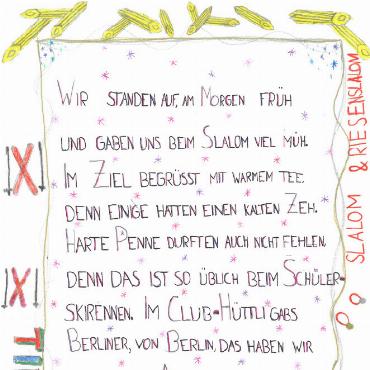 WIR STANDEN AUF, AM MORGEN FRÜH
UND GABEN UNS BEIM SLALOM VIEL MÜH.
IM ZIEL BEGRÜSST MIT WARMEM TEE.
DENN EINIGE HATTEN EINEN KALTEN ZEH.
HARTE PENNE DURFTEN AUCH NICHT FEHLEN,
DENN DAS IST SO ÜBLICH BEIM SCHÜLER-
SKIRENNEN. IM CLUB-HÜTTLI GABS
BERLINER, VON BERLIN, DAS HABEN WIR
SLALOM & RIESENSLALOM